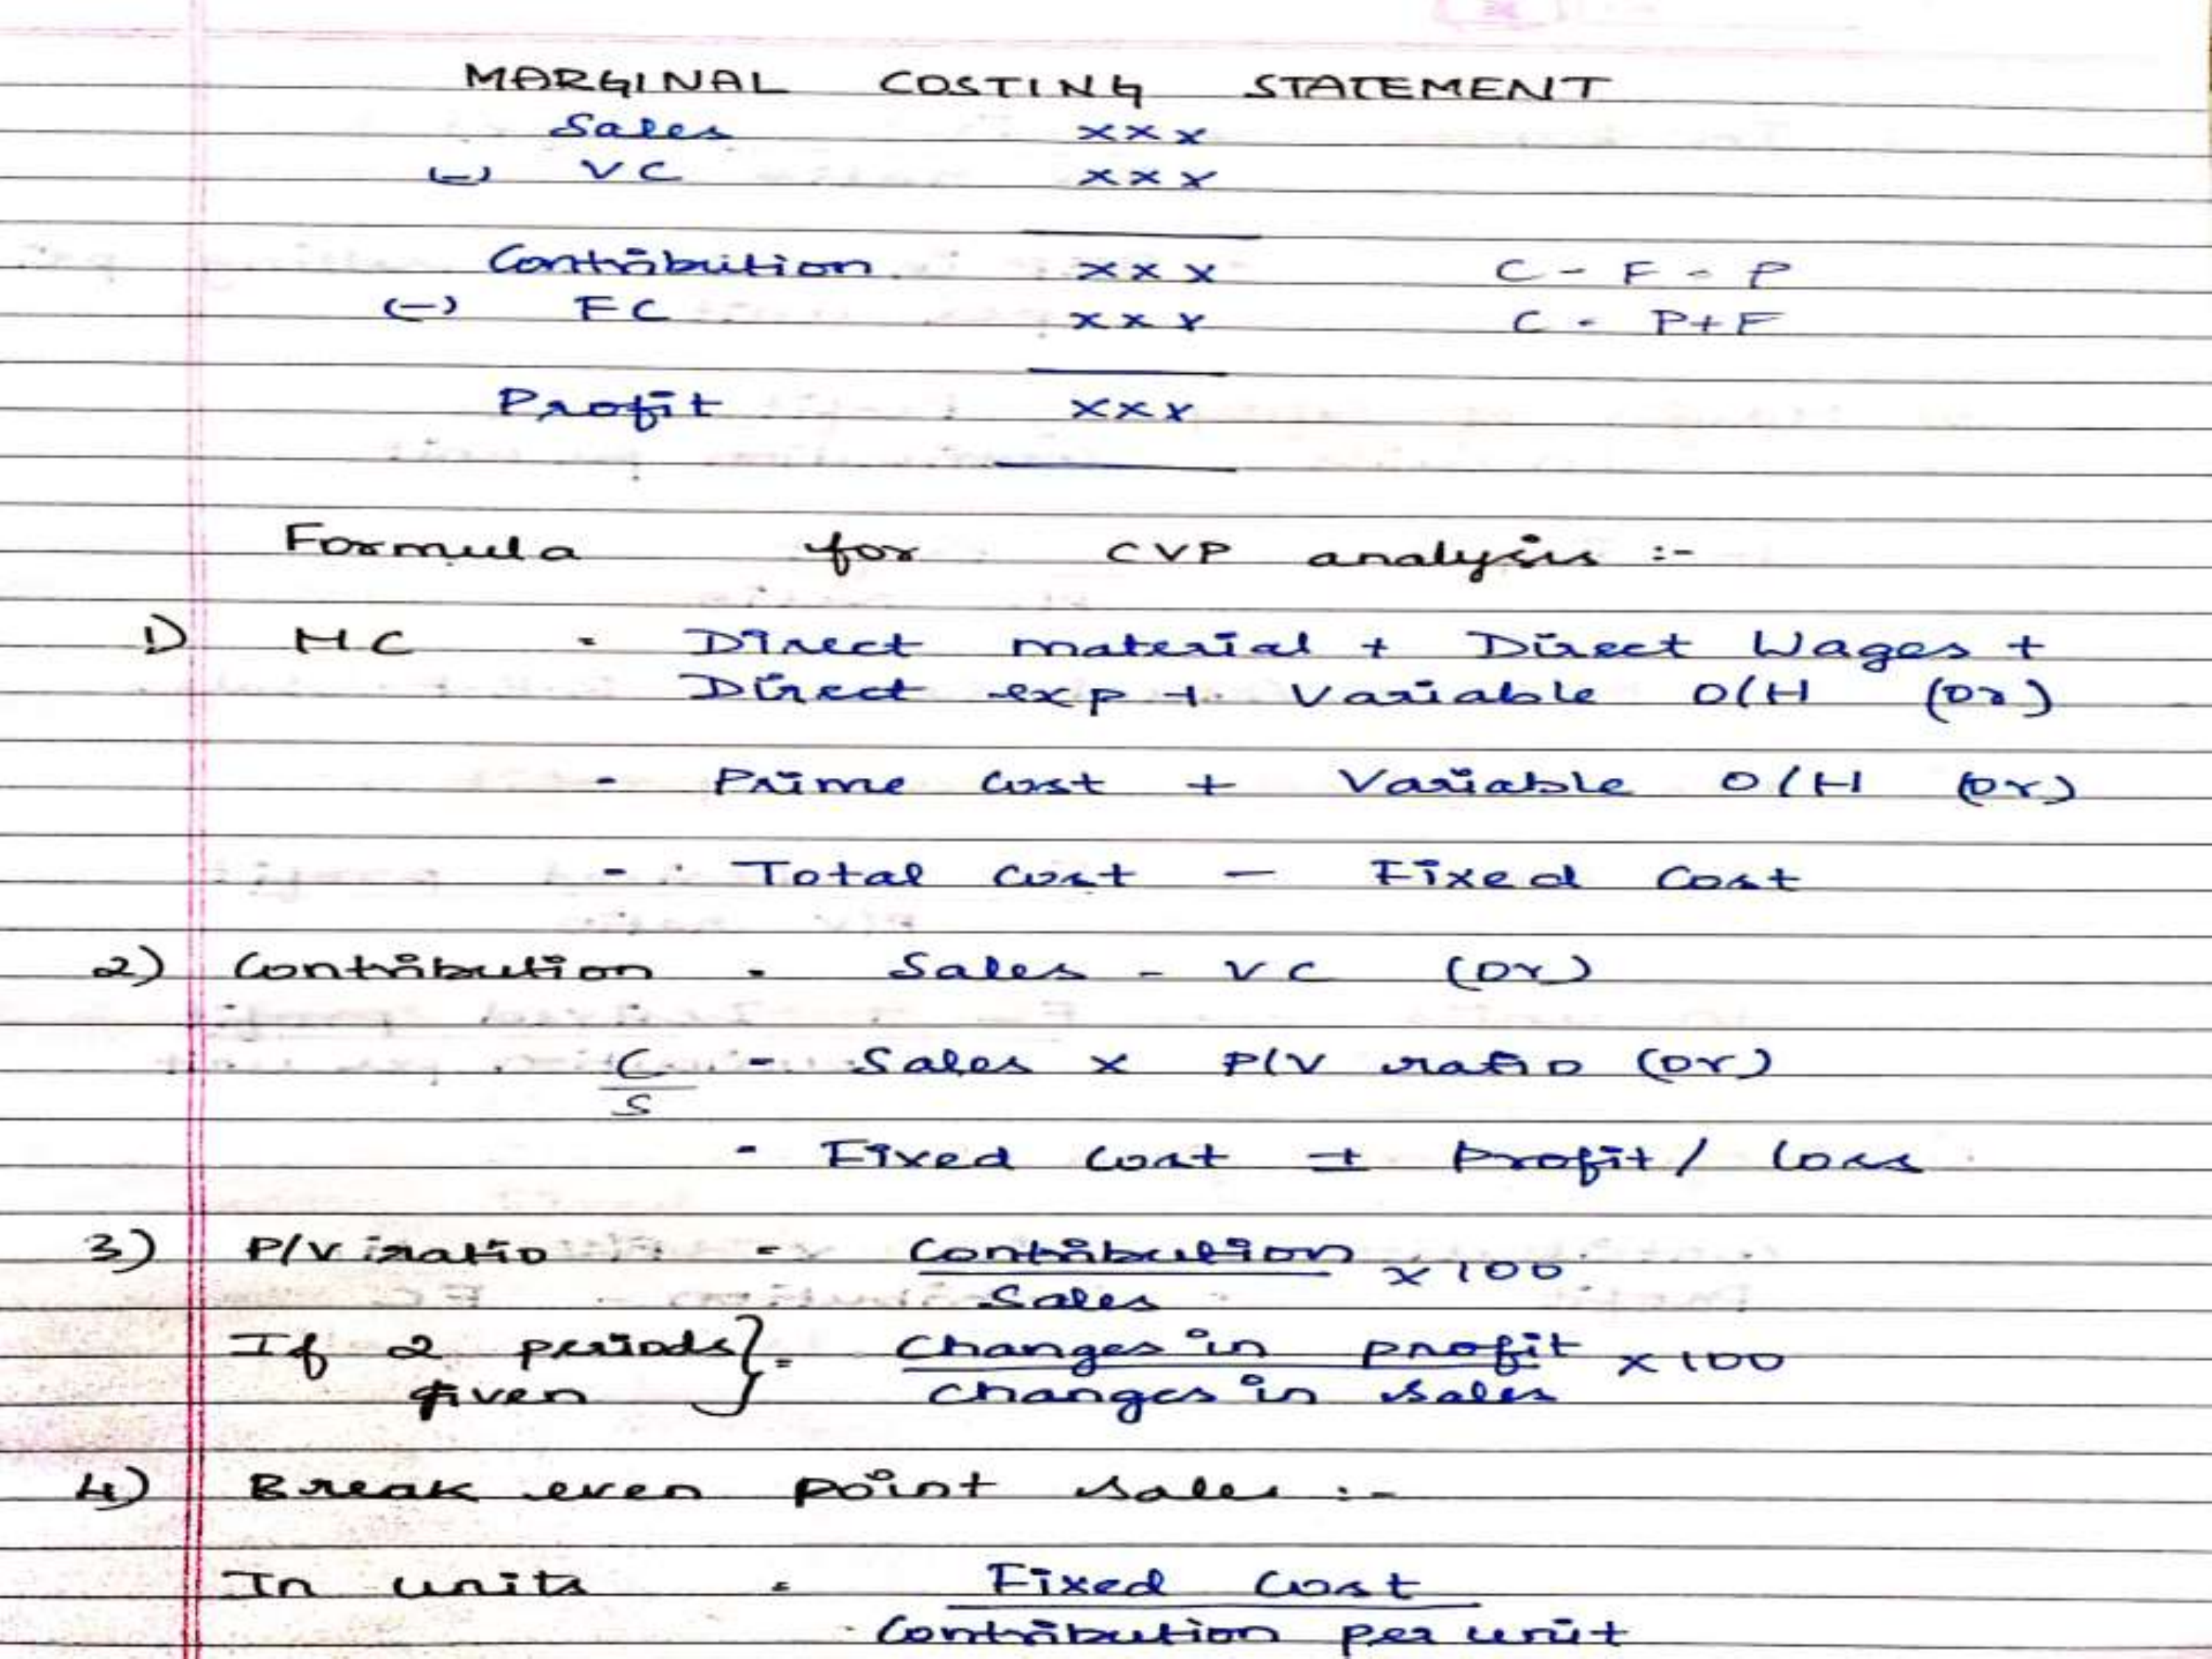 MARGINAL COSTING STATEMENT
Sales xxx
(-) VC xxx
Contribution xxx C - F = P
(-) FC xxx C = P+F
Profit xxx
Formula for CVP analysis :-
1) MC = Direct material + Direct Wages +
Direct exp + Variable O/H (or)
= Prime cost + Variable O/H (or)
= Total cost - Fixed cost
2) Contribution = Sales - VC (or)
C/S = Sales x P/V ratio (or)
= Fixed cost ± Profit / loss
3) P/V ratio = Contribution/Sales x 100
If 2 periods given } = Changes in profit/Changes in sales x 100
4) Break even point sales :-
In units = Fixed cost/Contribution per unit